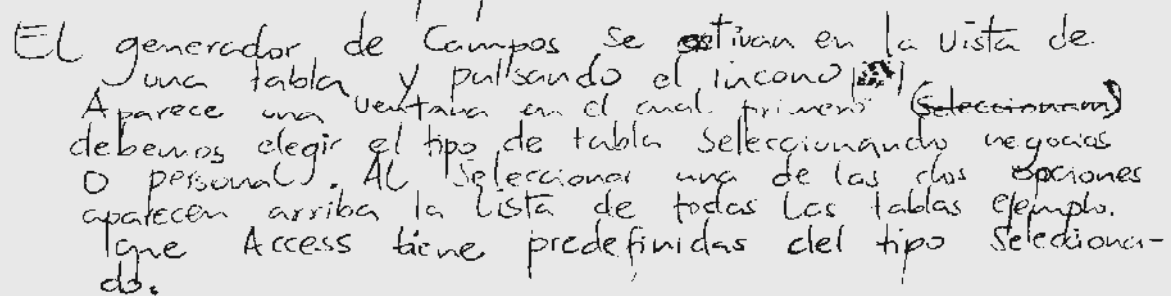 EL generador de Campos se activan en la Vista de
una tabla y pullsando el incono
Aparece una ventana en el cual primero (seleccionamos)
debemos elegir el tipo de tabla Seleccionando negocios
O personal. AL Seleccionar una de las dos opciones
aparecen arriba la Lista de todas Las tablas ejemplo.
que Access tiene predefinidas del tipo Selecciona-
do.